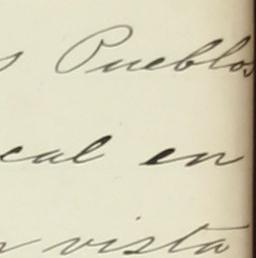 s Pueblos
cal en
vista